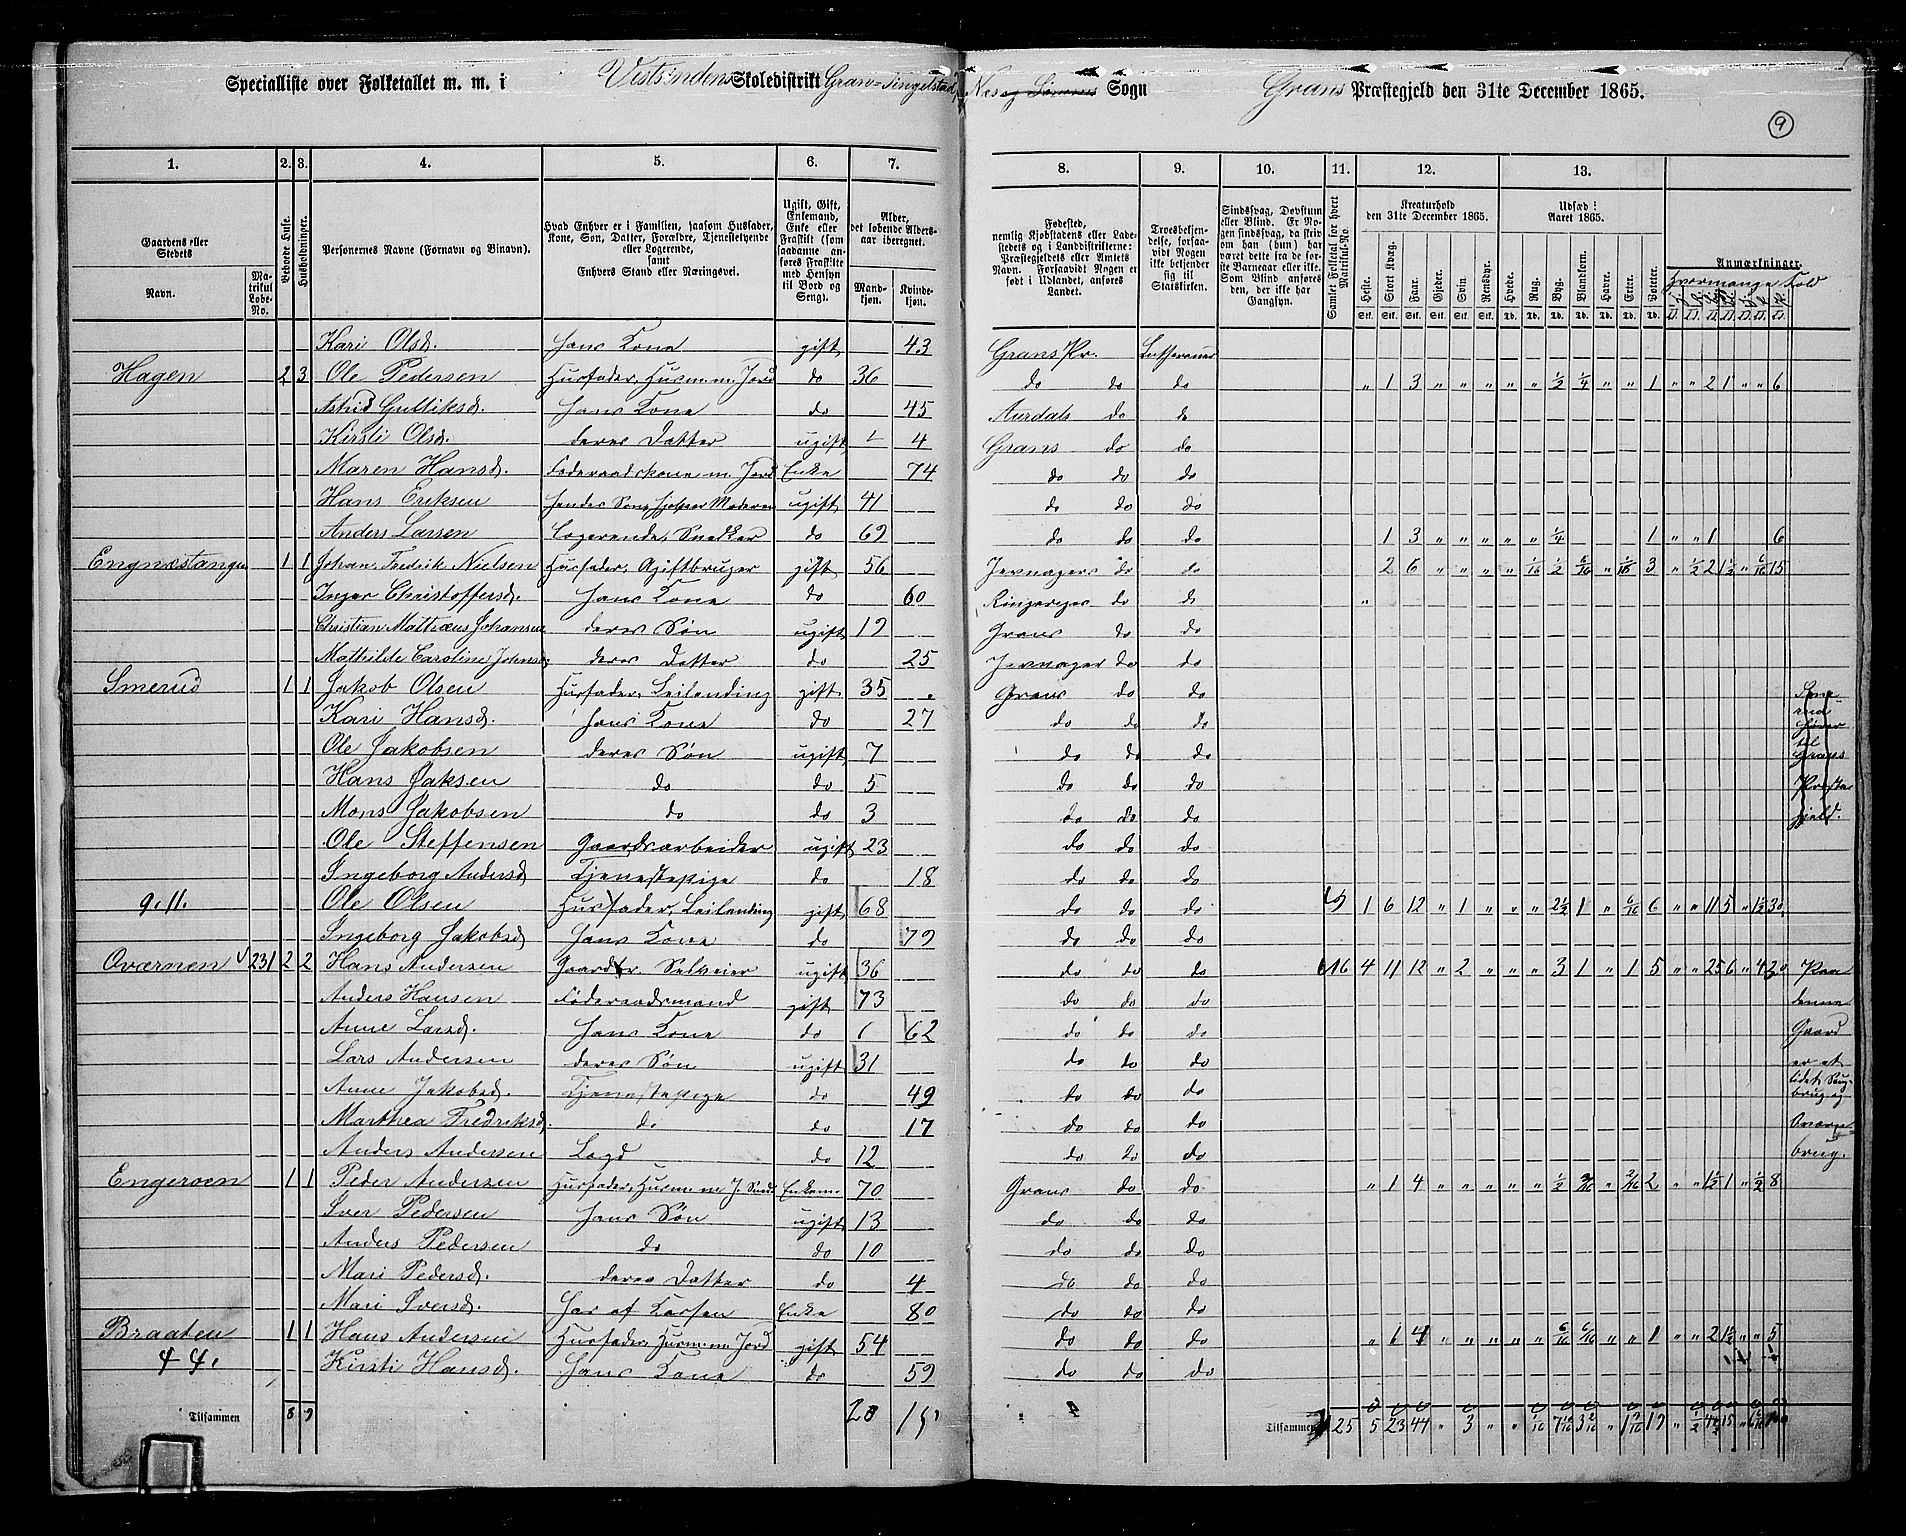 Specialliste over Folketallet m. m. i Vestsinden Skoledistrikt Grans Præstegjeld den 31te December 1865.
Sogn
9
1. 2. 3. 4. 5. 6. 7. 8. 9. 10. 11. 12. 13.
Gaardens eller Stedets
Navn.
Matrikul Løbe-No.
Beboede Huse.
Husholdninger.
Personernes Navne (Fornavn og Binavn).
Hvad Enhver er i Familien, saasom Husfader, Kone, Søn, Datter, Forældre, Tjenestetyende eller Logerende, samt Enhvers Stand eller Næringsvei.
Ugift, Gift, Enkemand, Enke eller Fraskilt (som saadanne anføres Fraskilte med Hensyn til Bord og Seng).
Alder, det løbende Aldersaar iberegnet.
Mandkjøn.
Kvindekjøn.
Fødested, nemlig Kjøbstadens eller Ladestedets og i Landdistrikterne: Præstegjeldets eller Amtets Navn. Forsaavidt Nogen er født i Udlandet, anføres Landet.
Troesbekjendelse, forsaavidt Nogen ikke bekjender sig til Statskirken.
Sindssvag, Døvstum eller Blind. Er Nogen sindssvag, da skriv om han (hun) har været dette fra de første Barneaar eller ikke. Som Blind anføres den, der ikke har Gangsyn.
Samlet Folketal for hvert Matrikul-No.
Kreaturhold den 31te December 1865.
Heste. Stort Kvæg. Faar. Gjeder. Svin. Rensdyr.
Udsæd i Aaret 1865.
Hvede. Rug. Byg. Blandkorn. Havre. Erter. Poteter.
Anmærkninger.
Kari Olsd. hans Kone gift 43 Grans Pr. Lutheraner
Hagen 2 3 Ole Pedersen Husfader, Husm. m. Jord do 36 do do do " 1 3 " " " " " 1/2 1/4 " " 1 " " 2 1 " " 6
Astrid Gulliksd. hans Kone do 45 Aurdals do do
Kirsti Olsd. deres Datter ugift 4 Grans do do
Maren Hansd. Føderaadskone m. Jord Enke 74 do do do
Hans Eriksen hendes Søn, hjelper Moderen ugift 41 do do do
Anders Larsen Logerende, Snedker do 69 do do do 1 3 " " " " " 1/4 1 " " 1 6
Engnæstangen 1 1 Johan Fredrik Nielsen Husfader, Bygselbruger gift 56 Jevnager do do 2 6 " " " "
Inger Christoffersd. hans Kone do 60 Ringeriges do do
Christian Mathæus Johansen deres Søn ugift 19 Grans do do
Mathilde Caroline Johansd. deres Datter do 25 Jevnager do do
Smerud 1 1 Jakob Olsen Husfader, Leilending gift 35 Grans do do
Kari Hansd. hans Kone do 27 do do do
Ole Jakobsen deres Søn ugift 7 do do do
Hans Jaksen do do 5 do do do
Mons Jakobsen do do 3 do do do
Smerud hører til Grans Præstegjeld.
Ole Steffensen Gaardsarbeider ugift 23 do do do
Ingeborg Andersd. Tjenestepige do 18 do do do
Ole Olsen Husfader, Leilending gift 68 do do do 9 1 6 12 " 1 " " " 2 1/2 1 " 6/16 6 " " 11 5 " 1 1/2 30
Ingeborg Jakobsd. hans Kone do 79 do do do
Oværnen 231 2 2 Hans Andersen Gaardbr. Selveier ugift 36 do do do 16 4 11 12 " 2 " " " 3 1 " 1 5 " " 25 6 " 4 30
Anders Hansen Føderaadsmand gift 73 do do do
Anne Larsd. hans Kone do 62 do do do
Lars Andersen deres Søn ugift 31 do do do
Anne Jakobsd. Tjenestepige do 49 do do do
Marthea Fredriksd. do do 17 do do do
Anders Andersen Logd do 12 do do do
Paa denne Gaard er et lidet Saugbrug og Qværnebrug.
Engeroen 1 1 Peder Andersen Husfader, Husm. m. J. Enkem. 70 Grans do do " 1 4 " " " " " 1/2 " 2/16 2 " " 1 1/2 1 " 1/2 8
Iver Pedersen hans Søn ugift 13 do do do
Anders Pedersen do do 10 do do do
Mari Pedersd. deres Datter do 4 do do do
Mari Iversd. Enke 80 do do do
Braaten 1 1 Hans Andersen Husfader, Husm. m. Jord gift 54 do do do " 1 4 " " " " " 6/16 6/16 " " 1 " " 2 1 1/2 " " 5
44. Kirsti Hansd. hans Kone do 59 do do do
Tilsammen 8 9 20 15
Tilsammen 25 5 23 44 " 3 " "